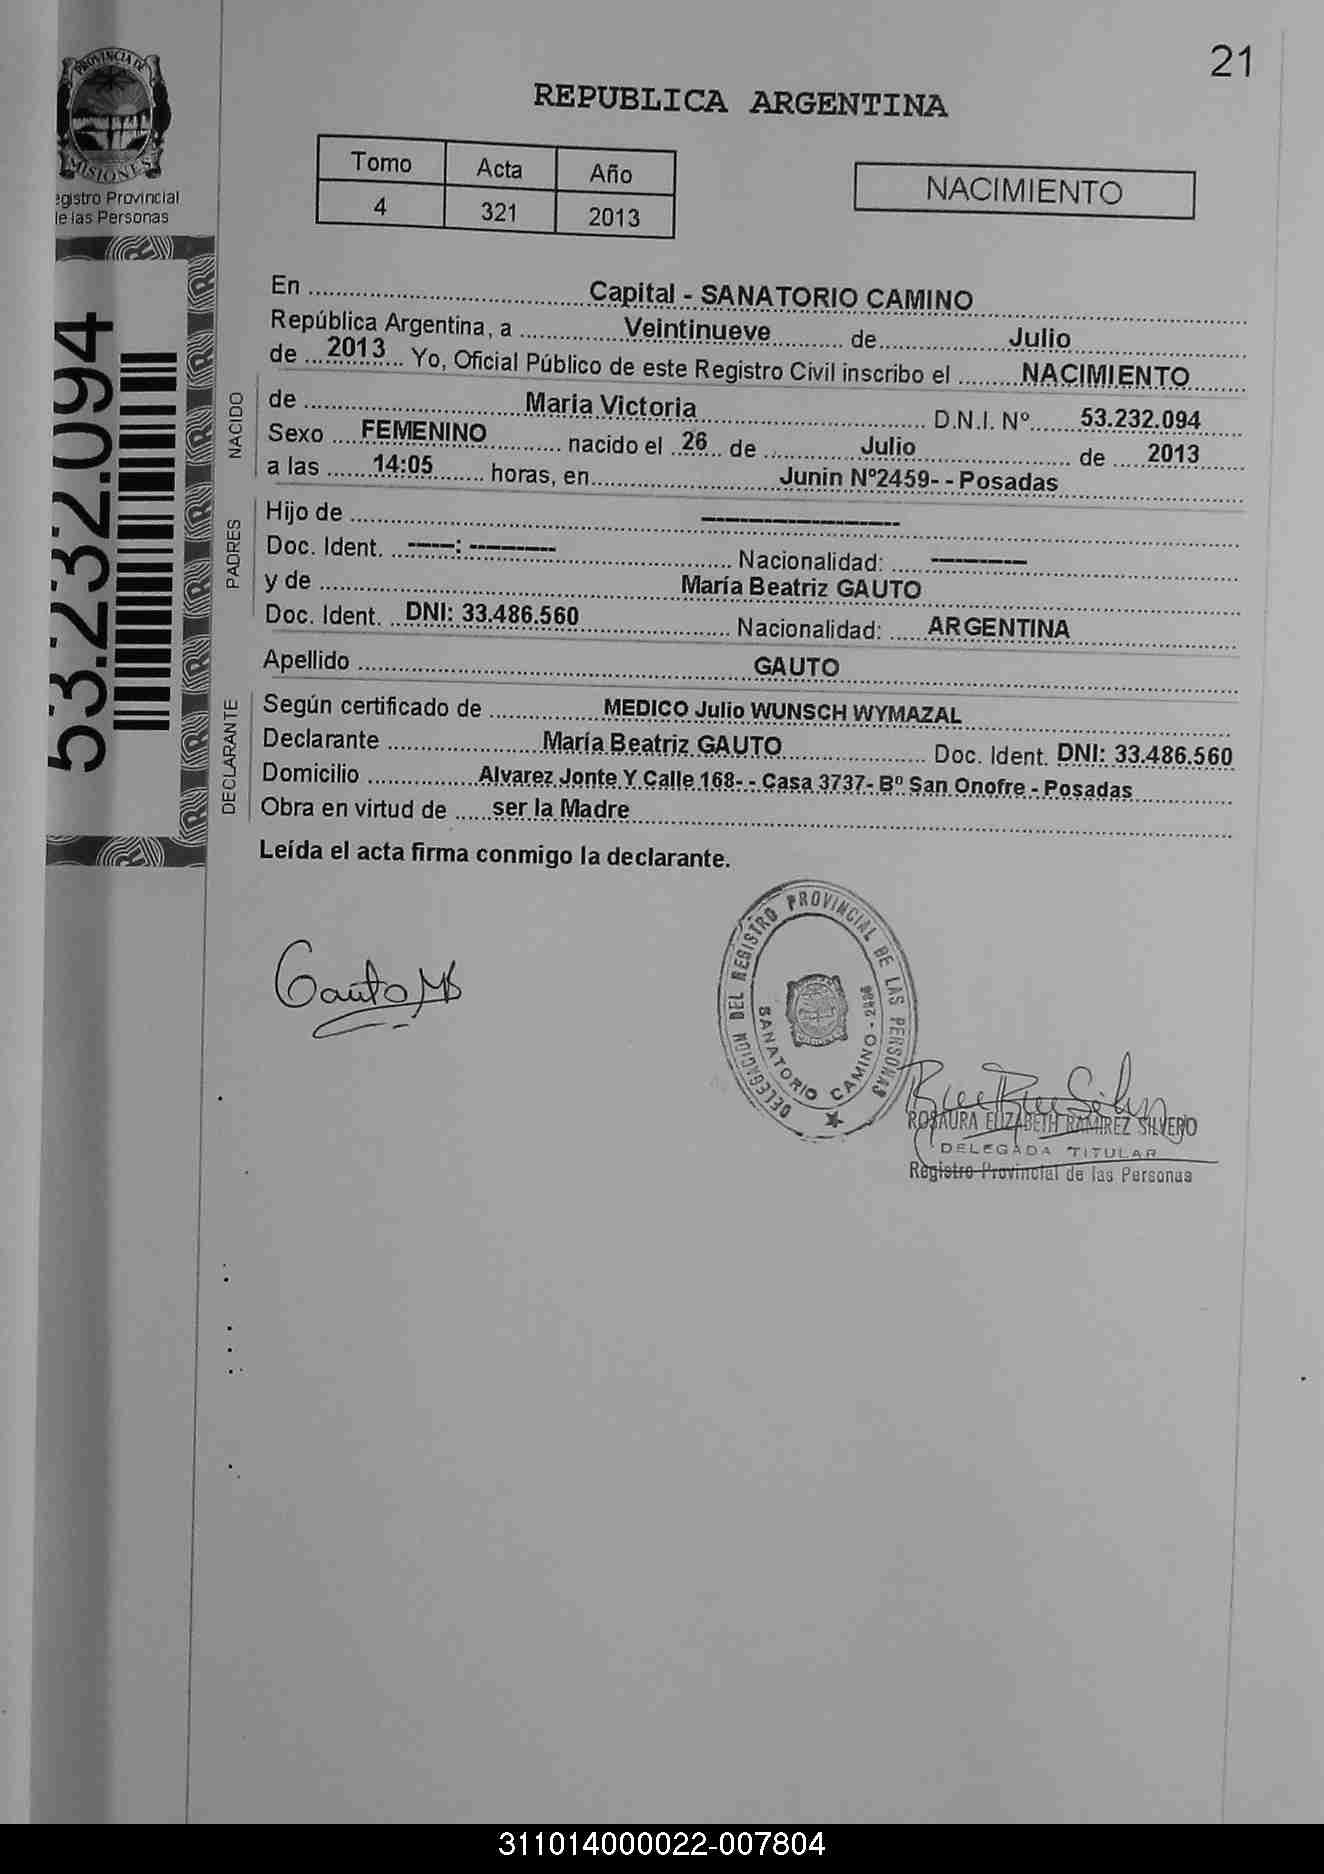 21
PROVINCIA DE
MISIONES
egistro Provincial
de las Personas
REPUBLICA ARGENTINA
Tomo Acta Año
4 321 2013
NACIMIENTO
53.232.094
En Capital - SANATORIO CAMINO
República Argentina, a Veintinueve de Julio
de 2013 Yo, Oficial Público de este Registro Civil inscribo el NACIMIENTO
NACIDO
de María Victoria D.N.I. Nº 53.232.094
Sexo FEMENINO nacido el 26 de Julio de 2013
a las 14:05 horas, en Junin Nº2459- - Posadas
PADRES
Hijo de --------------------
Doc. Ident. -----: --------- Nacionalidad: ----------
y de María Beatriz GAUTO
Doc. Ident. DNI: 33.486.560 Nacionalidad: ARGENTINA
Apellido GAUTO
DECLARANTE
Según certificado de MEDICO Julio WUNSCH WYMAZAL
Declarante María Beatriz GAUTO Doc. Ident. DNI: 33.486.560
Domicilio Alvarez Jonte Y Calle 168- - Casa 3737- Bº San Onofre - Posadas
Obra en virtud de ser la Madre
Leída el acta firma conmigo la declarante.
Gauto MB
DELEGACION DEL REGISTRO PROVINCIAL DE LAS PERSONAS
SANATORIO CAMINO
ROSAURA ELIZABETH RAMIREZ SILVERO
DELEGADA TITULAR
Registro Provincial de las Personas
311014000022-007804